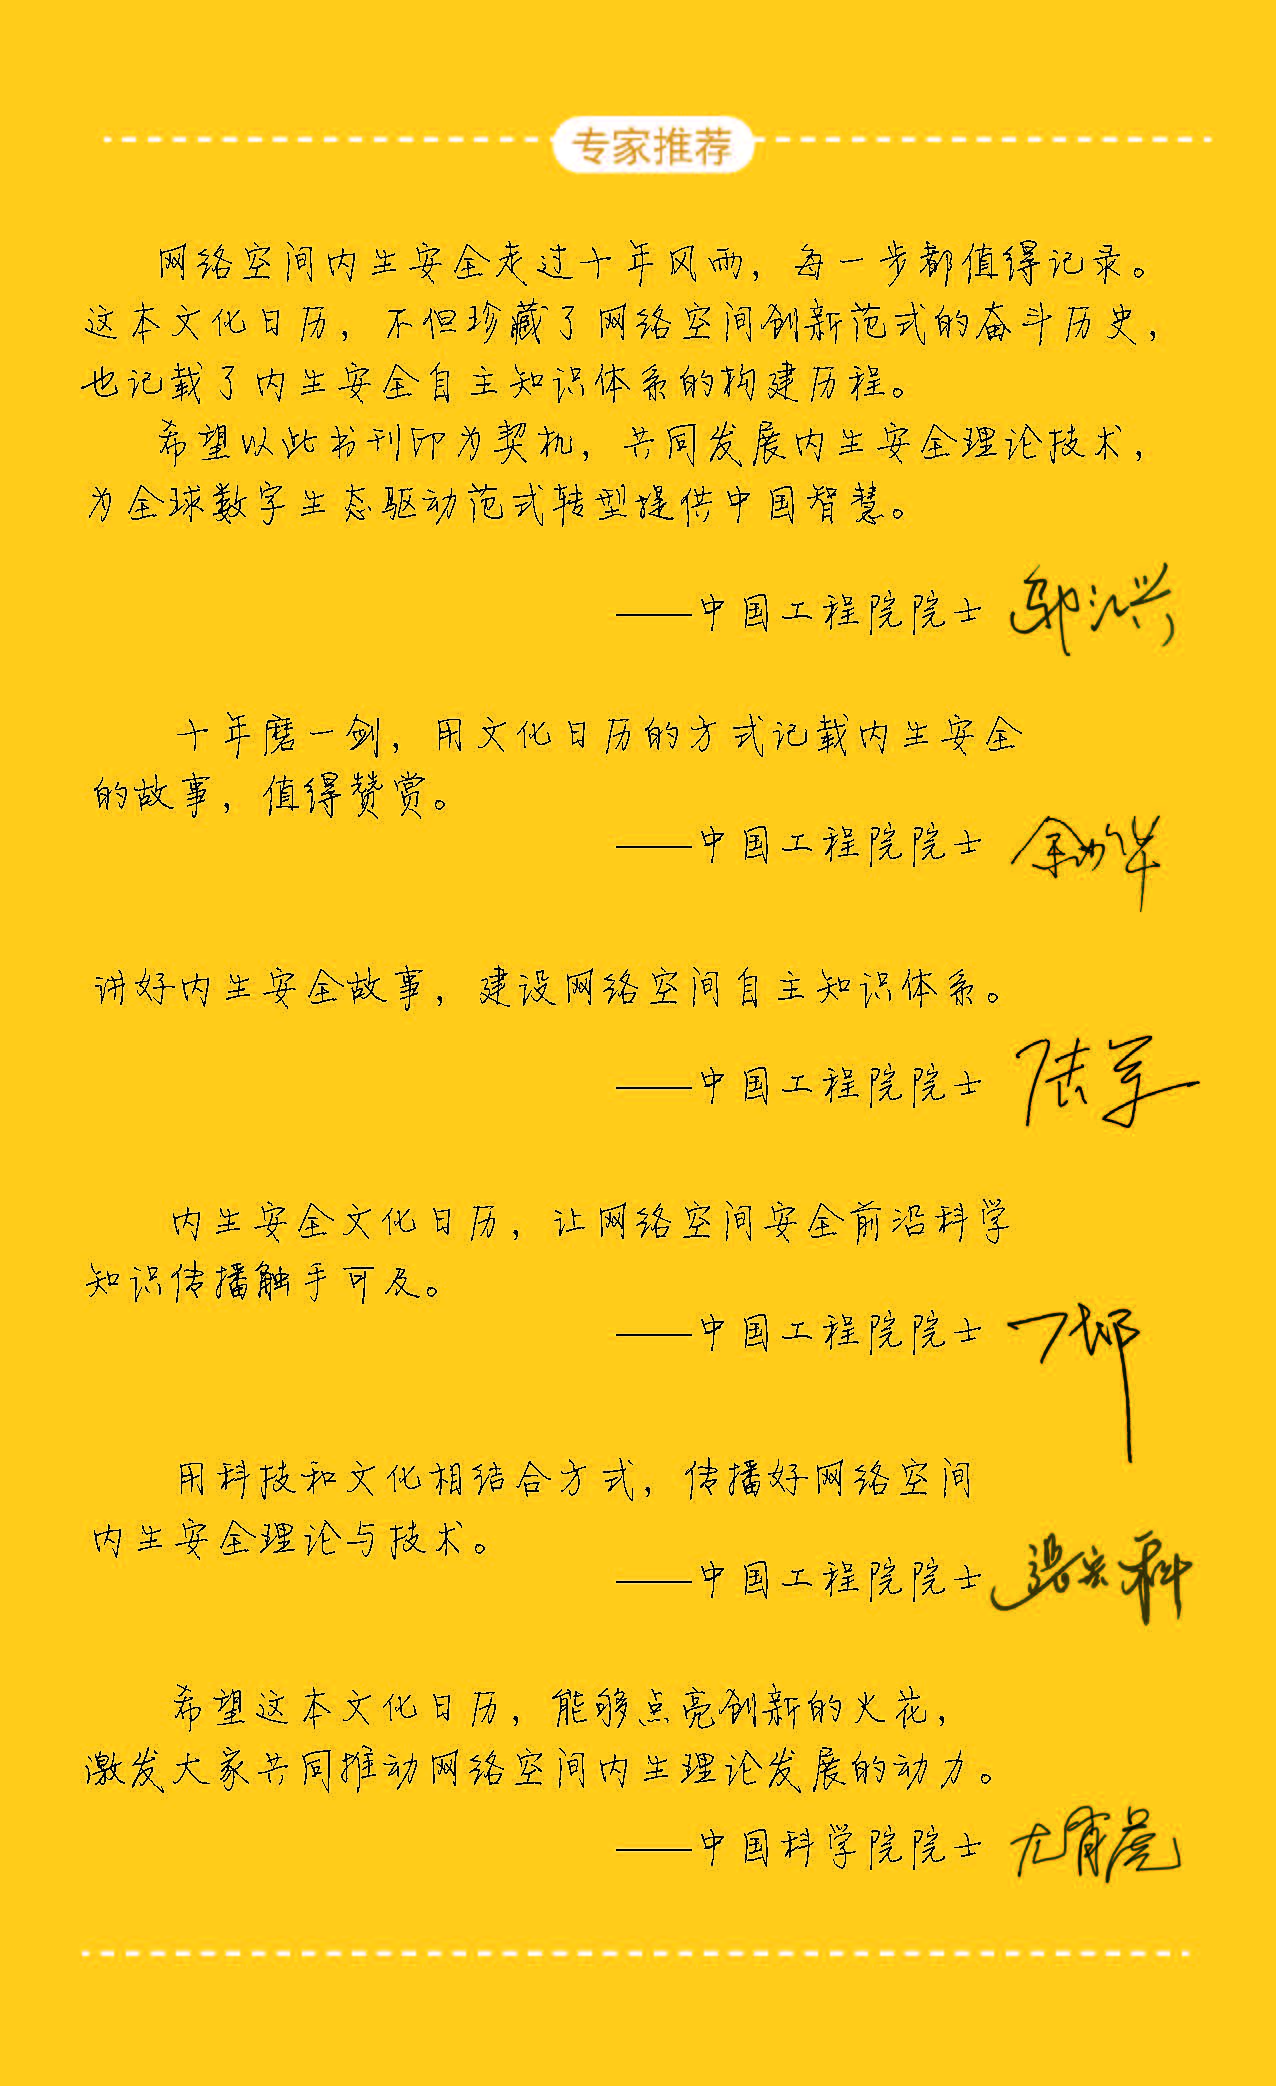 专家推荐
网络空间内生安全走过十年风雨，每一步都值得记录。
这本文化日历，不但珍藏了网络空间创新范式的奋斗历史，
也记载了内生安全自主知识体系的构建历程。
希望以此书刊印为契机，共同发展内生安全理论技术，
为全球数字生态驱动范式转型提供中国智慧。
——中国工程院院士 邬江兴
十年磨一剑，用文化日历的方式记载内生安全
的故事，值得赞赏。
——中国工程院院士 余少华
讲好内生安全故事，建设网络空间自主知识体系。
——中国工程院院士 陆军
内生安全文化日历，让网络空间安全前沿科学
知识传播触手可及。
——中国工程院院士
用科技和文化相结合方式，传播好网络空间
内生安全理论与技术。
——中国工程院院士 张宏科
希望这本文化日历，能够点亮创新的火花，
激发大家共同推动网络空间内生理论发展的动力。
——中国科学院院士 尤肖虎